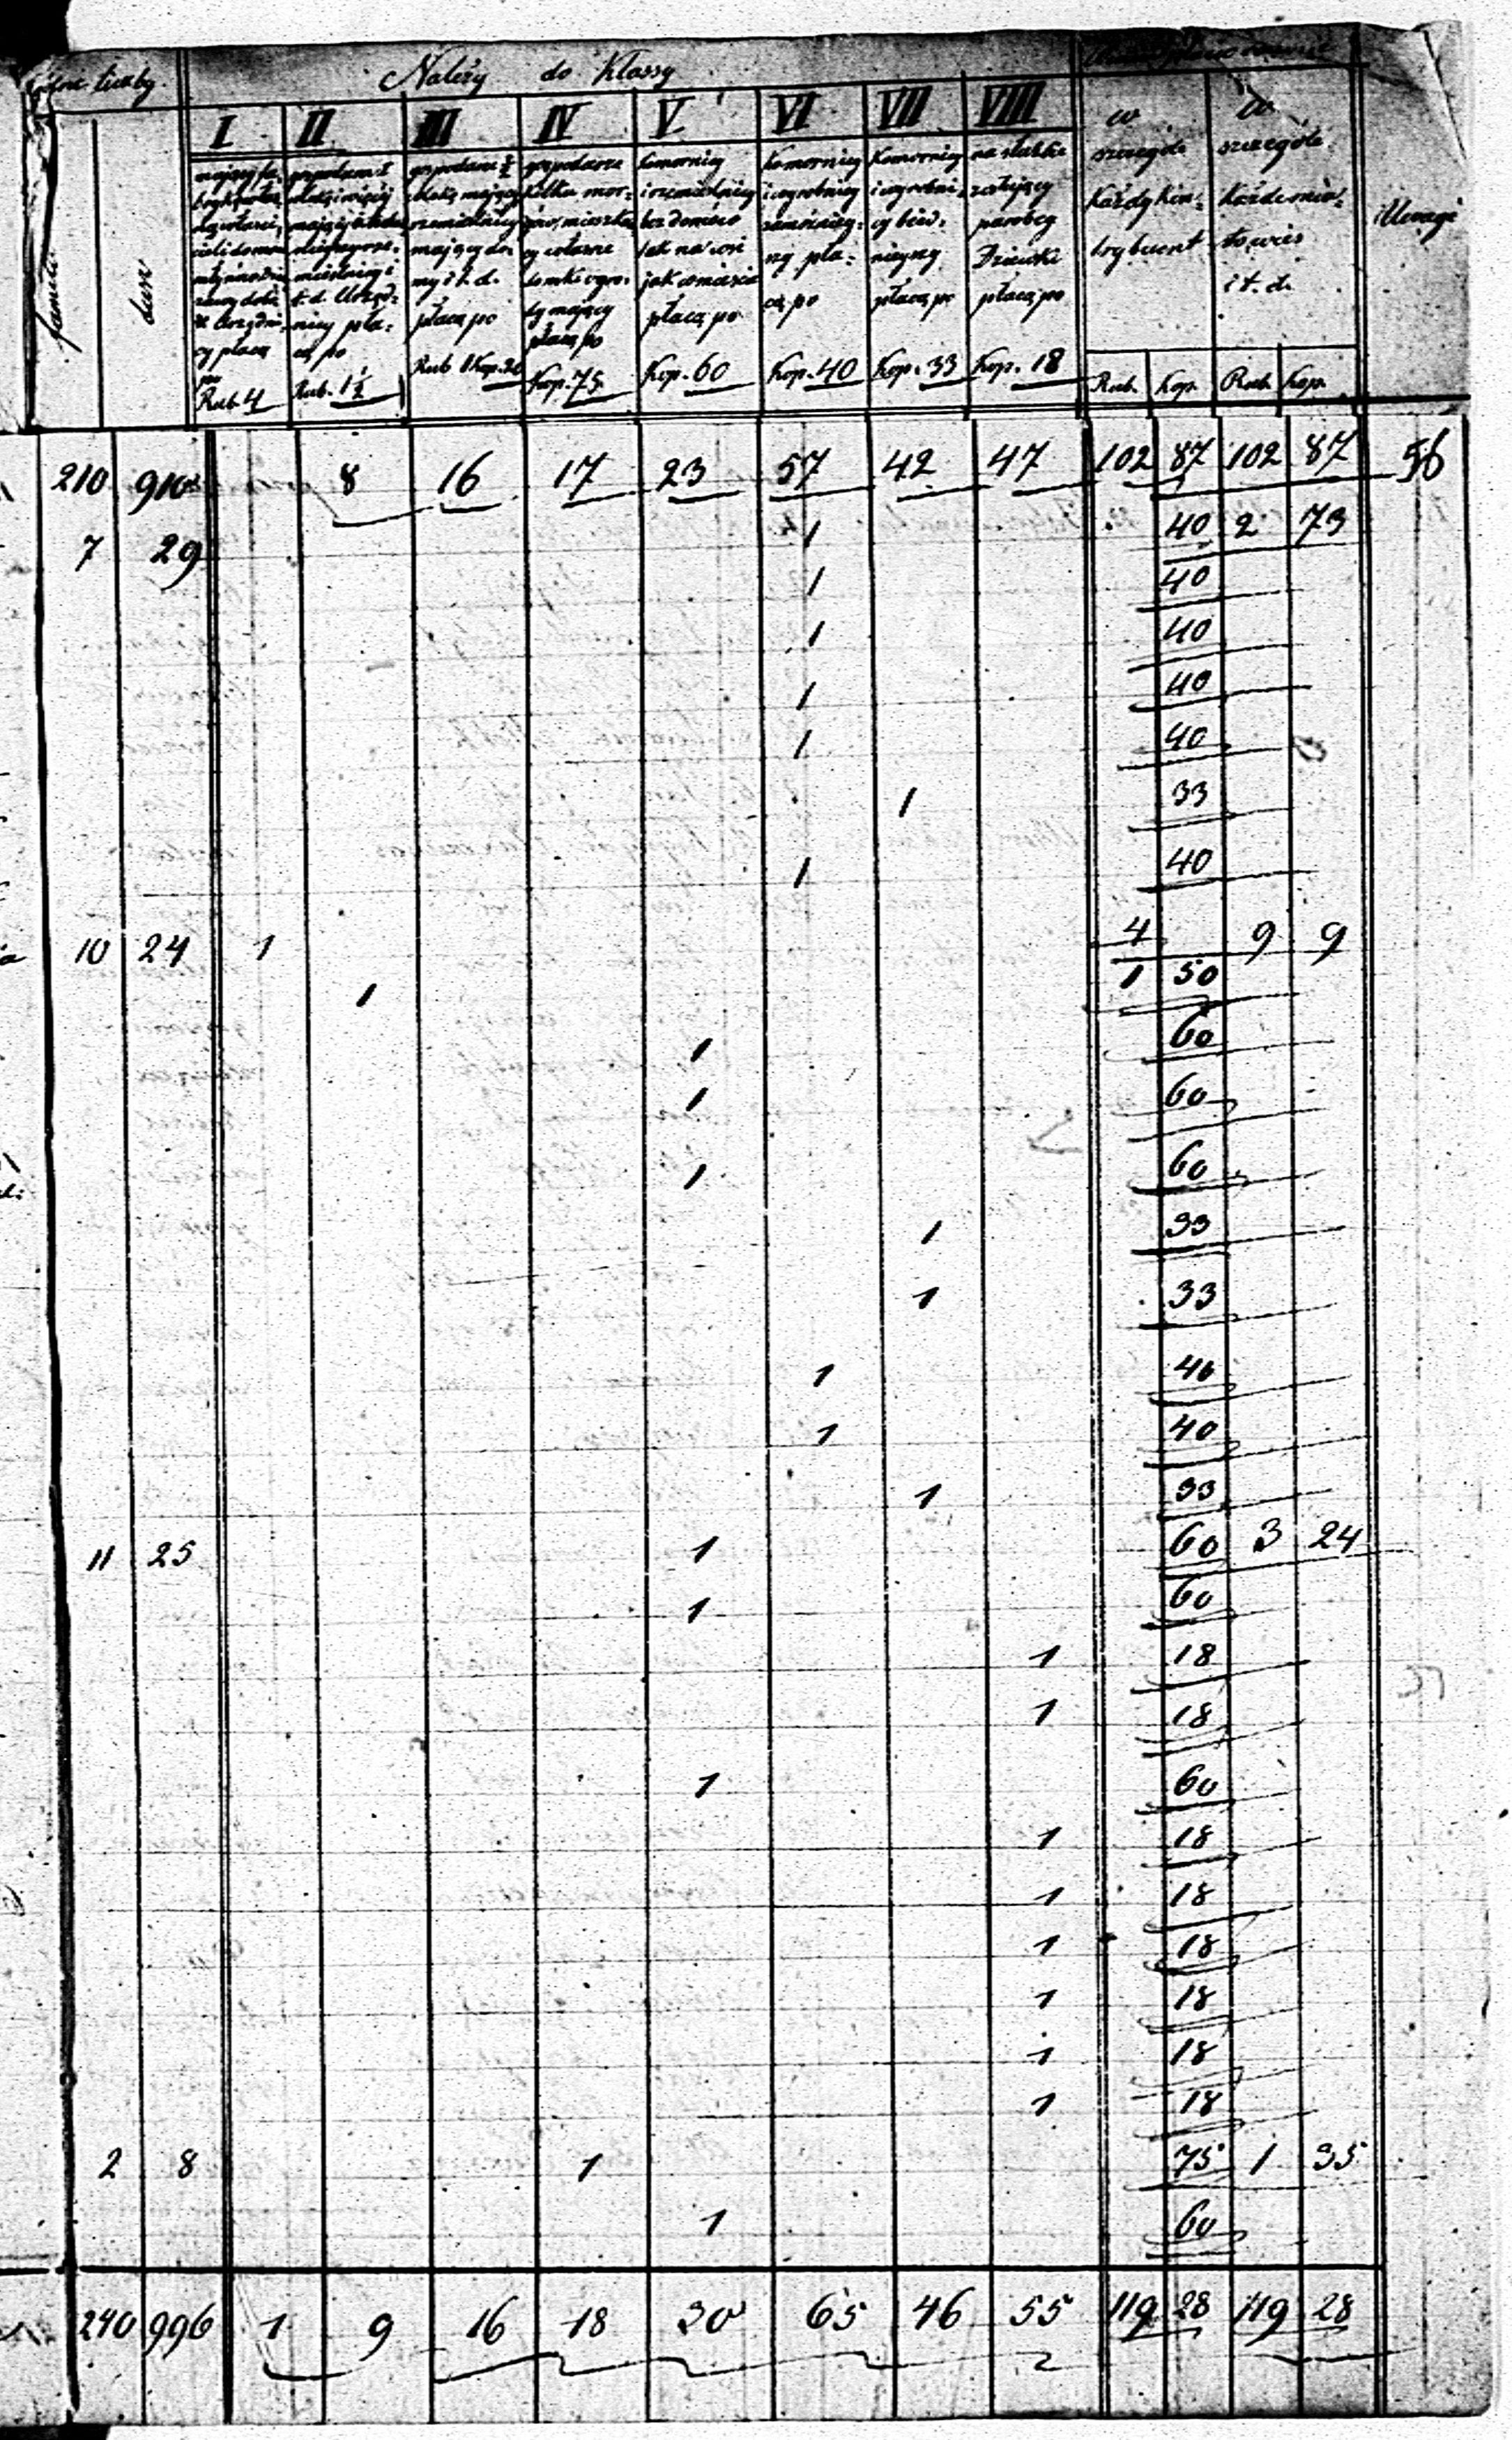 liczby Należy do Klassy
I II III IV V VI VII VIII
familii
dusz
gospodarze
mający
płacą
Rub. 4
płacą po
Rub. 1½
gospodarze ½
mający do-
my i t. d.
płacą po
Rub 1 Kop. 20
gospodarze
kilka mor-
płacą po
Kop. 75
Komornicy
i rzemieślnicy
bez domów
tak na wsi
jak w mieście
płacą po
Kop. 60
Komornicy
i wyrobnicy
zamożniej-
szy pła-
cą po
Kop. 40
Komornicy
i wyrobni-
cy bied-
niejszy
płacą po
Kop. 33
na służbie
zostający
parobcy
Dziewki
płacą po
Kop. 18
w
szczególe
Każdy Kon-
trybuent
Rub. Kop.
w
szczególe
Każde mia-
sto wieś
i t. d.
Rub. Kop.
Uwagi
210 910 8 16 17 23 57 42 47 102 87 102 87 56
7 29 1 40 2 73
1 40
1 40
1 40
1 40
1 33
1 40
10 24 1 4 9 9
1 1 50
1 60
1 60
1 60
1 33
1 33
1 40
1 40
1 33
11 25 1 60 3 24
1 60
1 18
1 18
1 60
1 18
1 18
1 18
1 18
1 18
1 18
2 8 1 75 1 35
1 60
240 996 1 9 16 18 30 65 46 55 119 28 119 28